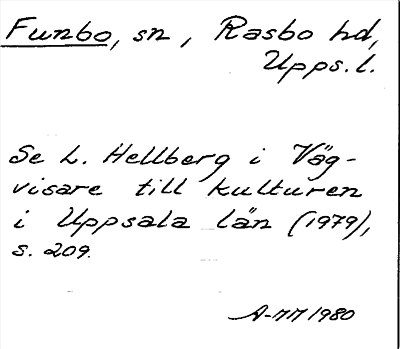 Funbo, sn, Rasbo hd,
Upps. l.
Se L. Hellberg i Väg-
visare till kulturen
i Uppsala län (1979),
s. 209.
A-MM 1980